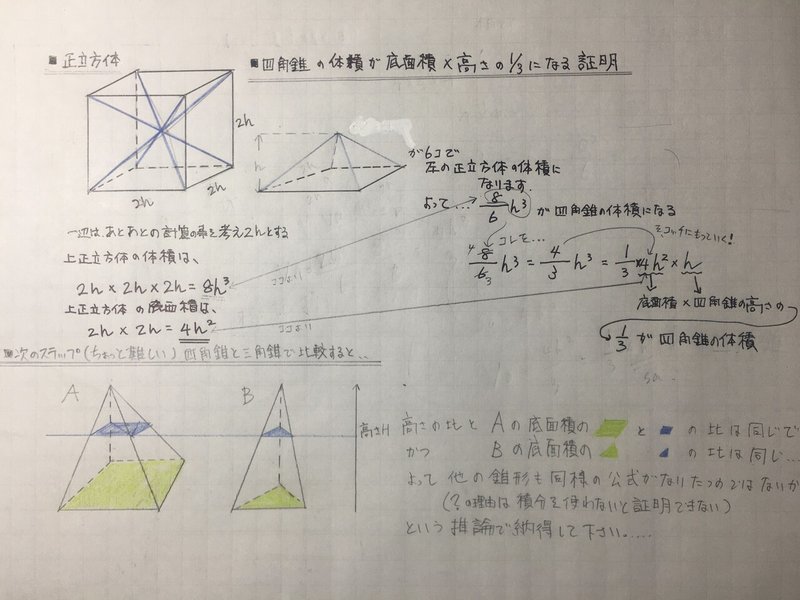 ■正立方体
■四角錐の体積が底面積×高さの1/3になる証明
2h
2h
2h
h
が6コで
左の正立方体の体積に
なります.
よって… 8/6 h³ が四角錐の体積になる
一辺はあとあとの計算の事を考え2hとする
上正立方体の体積は、
2h × 2h × 2h = 8h³
ココより
上正立方体の底面積は、
2h × 2h = 4h²
ココより
コレを…
コッチにもっていく!
4 8/6 3 h³ = 4/3 h³ = 1/3 × 4h² × h
底面積 × 四角錐の高さの
1/3 が四角錐の体積
■次のステップ(ちょっと難しい)四角錐と三角錐で比較すると…
A
B
高さH
高さの比と Aの底面積の と の比は同じで
かつ Bの底面積の の比は同じ…
よって他の錐形も同様の公式がなりたつのではないか
(?の理由は積分を使わないと証明できない)
という推論で納得して下さい……